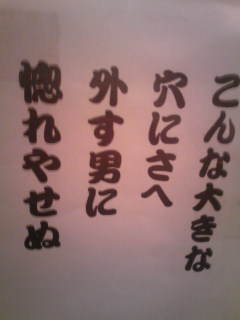 こんな大きな
穴にさへ
外す男に
惚れやせぬ